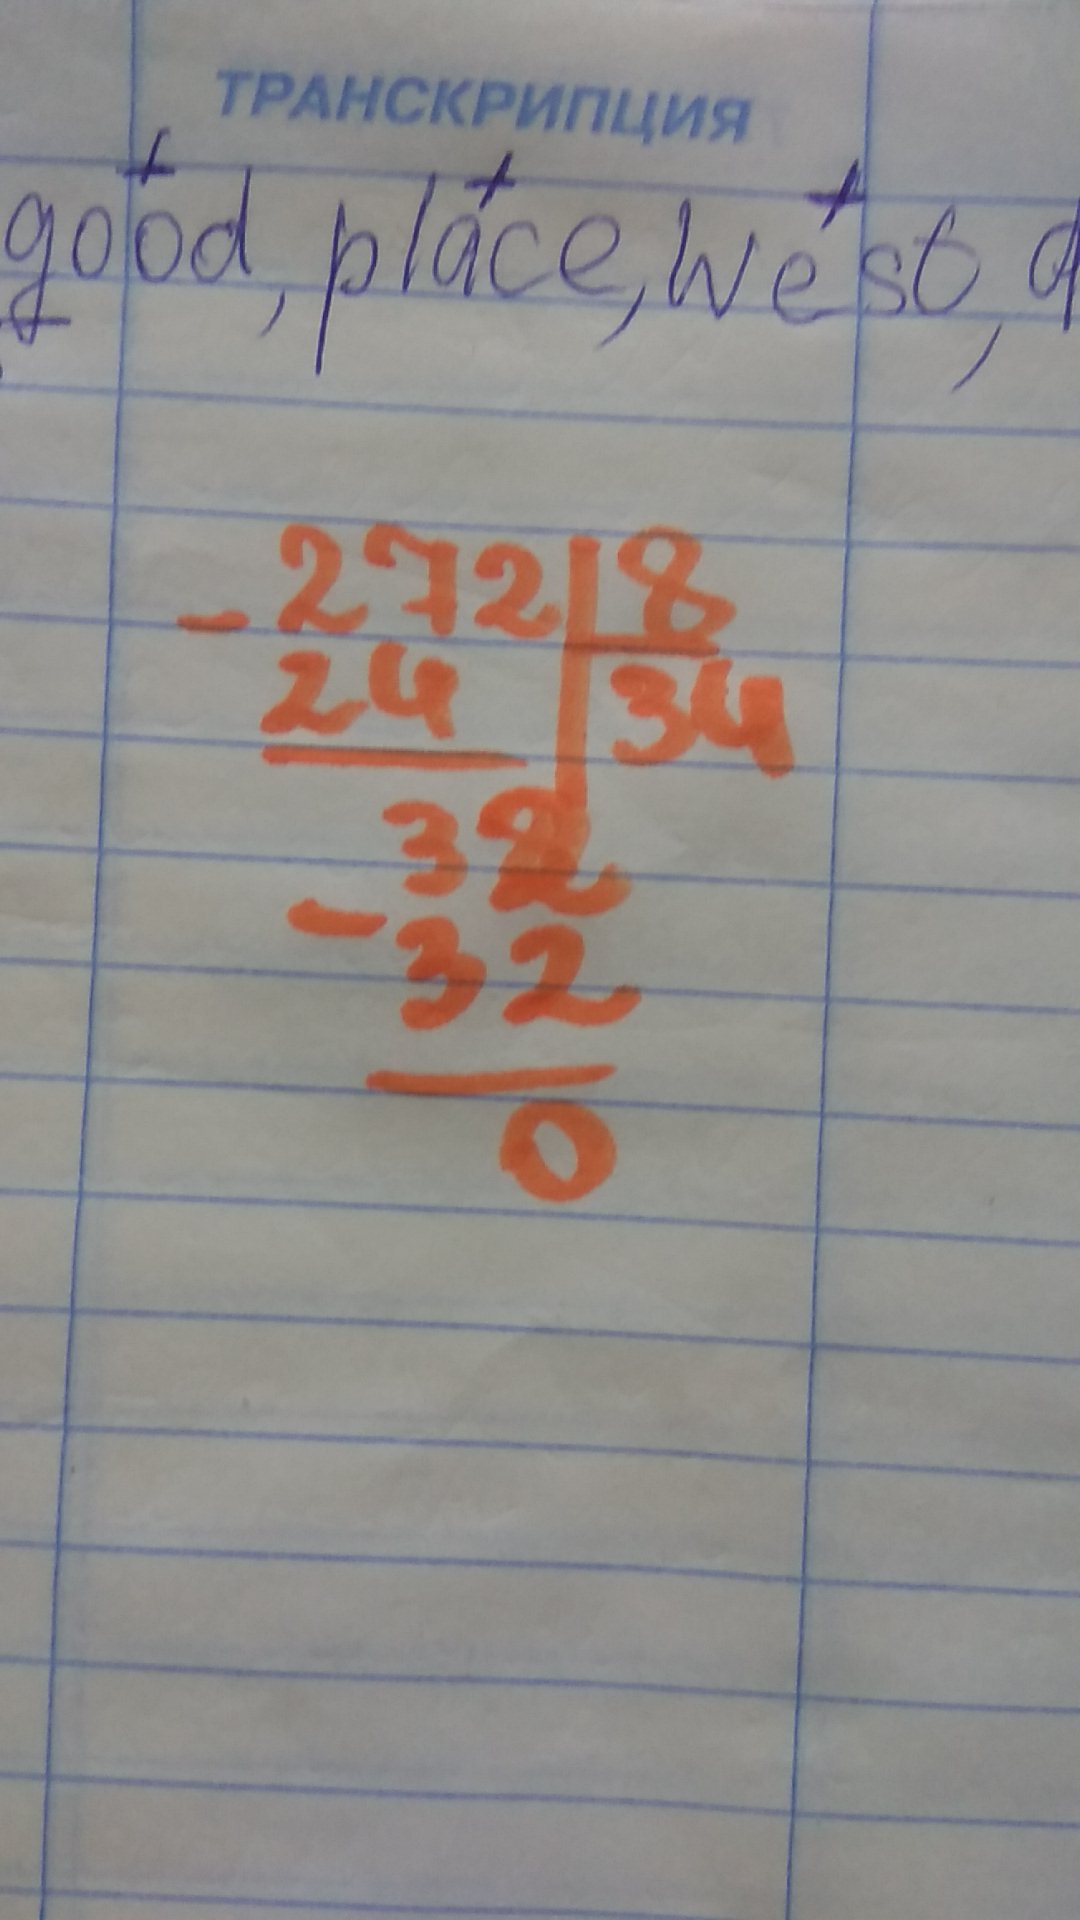 ТРАНСКРИПЦИЯ
good, place, west,
- 272 8
24 34
32
- 32
0